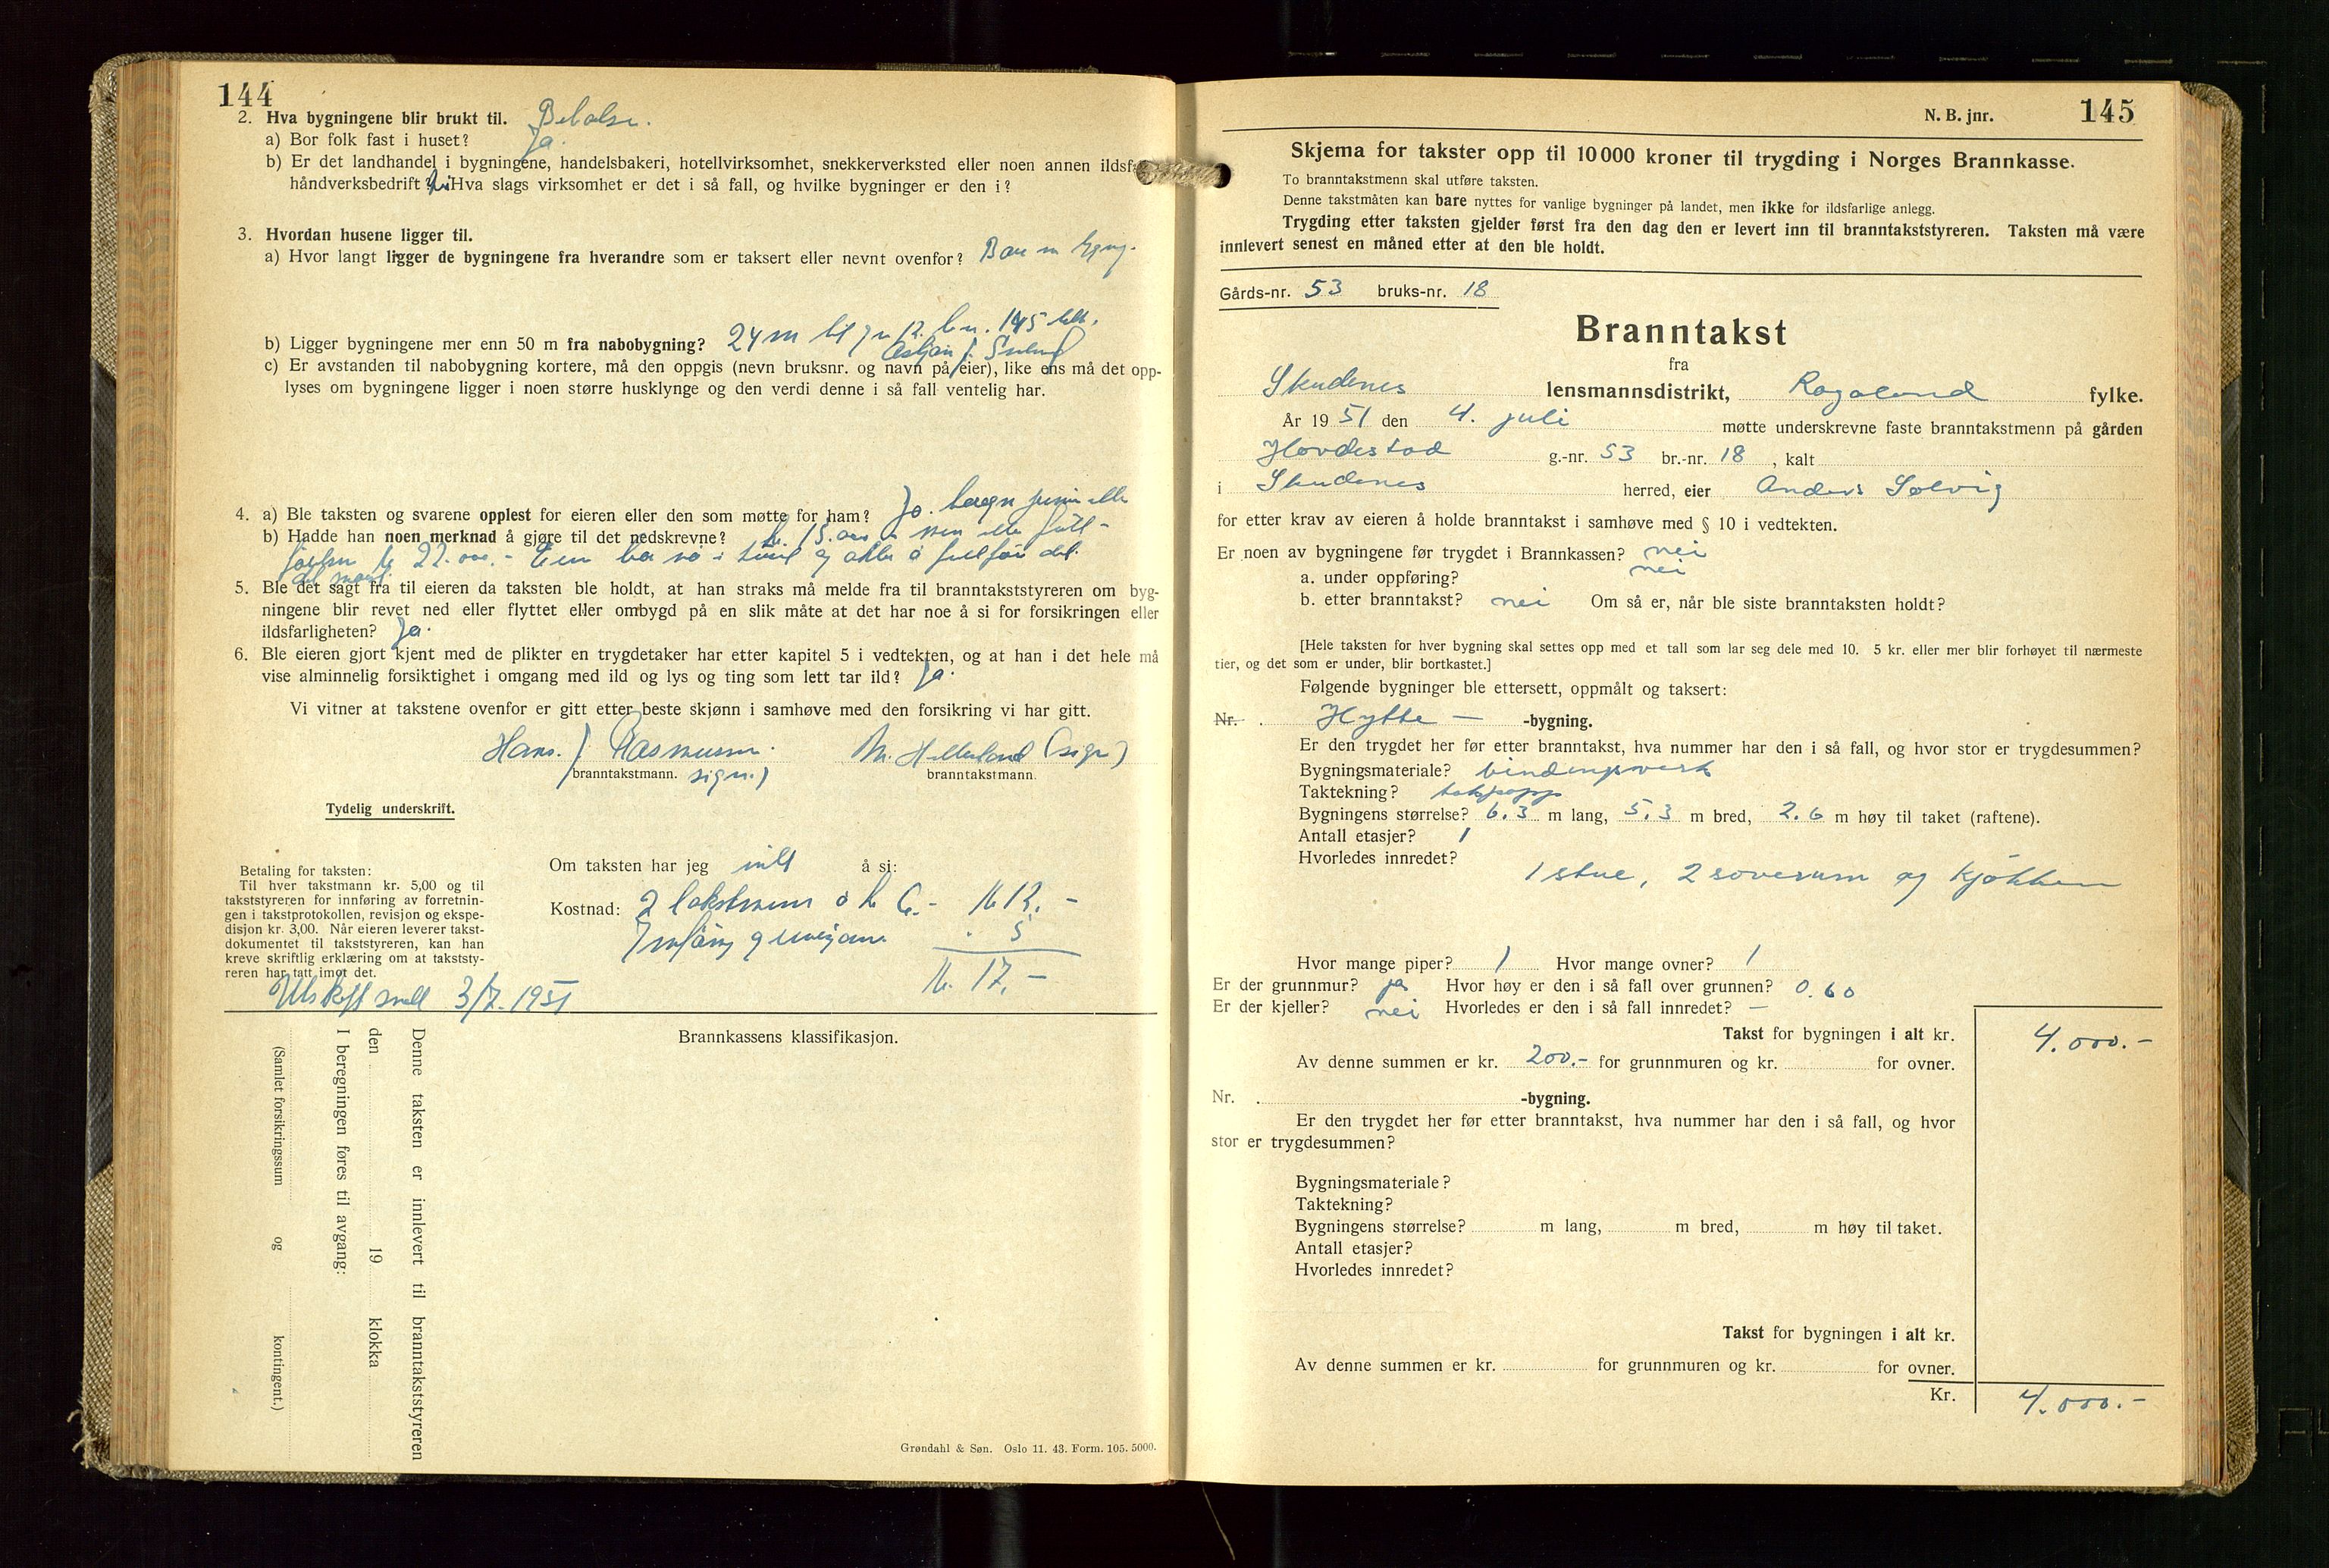 144
2. Hva bygningene blir brukt til. Bebolse.
a) Bor folk fast i huset? Ja.
b) Er det landhandel i bygningene, handelsbakeri, hotellvirksomhet, snekkerverksted eller noen annen ildsf
håndverksbedrift? Hva slags virksomhet er det i så fall, og hvilke bygninger er den i?
3. Hvordan husene ligger til.
a) Hvor langt ligger de bygningene fra hverandre som er taksert eller nevnt ovenfor? Bare en bygng.
b) Ligger bygningene mer enn 50 m fra nabobygning? 24 m til gn 12. bn. 145
c) Er avstanden til nabobygning kortere, må den oppgis (nevn bruksnr. og navn på eier), like ens må det opp-
lyses om bygningene ligger i noen større husklynge og den verdi denne i så fall ventelig har.
4. a) Ble taksten og svarene opplest for eieren eller den som møtte for ham? Ja.
b) Hadde han noen merknad å gjøre til det nedskrevne? kr. 15.000
kr 22.000.-
5. Ble det sagt fra til eieren da taksten ble holdt, at han straks må melde fra til branntakststyreren om byg-
ningene blir revet ned eller flyttet eller ombygd på en slik måte at det har noe å si for forsikringen eller
ildsfarligheten? Ja.
6. Ble eieren gjort kjent med de plikter en trygdetaker har etter kapitel 5 i vedtekten, og at han i det hele må
vise alminnelig forsiktighet i omgang med ild og lys og ting som lett tar ild? Ja.
Vi vitner at takstene ovenfor er gitt etter beste skjønn i samhøve med den forsikring vi har gitt.
Hans. J. Rasmussen. M. Hellesland (sign)
branntakstmann. sign.) branntakstmann.
Tydelig underskrift.
Betaling for taksten:
Til hver takstmann kr. 5,00 og til
takststyreren for innføring av forretnin-
gen i takstprotokollen, revisjon og ekspe-
disjon kr. 3,00. Når eieren leverer takst-
dokumentet til takststyreren, kan han
kreve skriftlig erklæring om at takststy-
reren har tatt imot det.
Om taksten har jeg intet å si:
Kostnad: 2 takstmenn à kr 6.- kr 12.-
5
kr. 17.-
3/7. 1951
Denne taksten er innlevert til branntakststyreren
den 19 klokka
I beregningen føres til avgang:
(Samlet forsikringssum og kontingent.)
Brannkassens klassifikasjon.
Grøndahl & Søn. Oslo 11. 43. Form. 105. 5000.
N. B. jnr. 145
Skjema for takster opp til 10 000 kroner til trygding i Norges Brannkasse.
To branntakstmenn skal utføre taksten.
Denne takstmåten kan bare nyttes for vanlige bygninger på landet, men ikke for ildsfarlige anlegg.
Trygding etter taksten gjelder først fra den dag den er levert inn til branntakststyreren. Taksten må være
innlevert senest en måned etter at den ble holdt.
Gårds-nr. 53 bruks-nr. 18
Branntakst
fra
Skudenes lensmannsdistrikt, Rogaland fylke.
År 1951 den 4. juli møtte underskrevne faste branntakstmenn på gården
Hovdestad g.-nr. 53 br.-nr. 18, kalt
i Skudenes herred, eier Anders Solvig
for etter krav av eieren å holde branntakst i samhøve med § 10 i vedtekten.
Er noen av bygningene før trygdet i Brannkassen? nei
a. under oppføring? nei
b. etter branntakst? nei Om så er, når ble siste branntaksten holdt?
[Hele taksten for hver bygning skal settes opp med et tall som lar seg dele med 10. 5 kr. eller mer blir forhøyet til nærmeste
tier, og det som er under, blir bortkastet.]
Følgende bygninger ble ettersett, oppmålt og taksert:
Nr. Hytte — -bygning.
Er den trygdet her før etter branntakst, hva nummer har den i så fall, og hvor stor er trygdesummen?
Bygningsmateriale? bindingsverk
Taktekning? takpapp
Bygningens størrelse? 6.3 m lang, 5.3 m bred, 2.6 m høy til taket (raftene).
Antall etasjer? 1
Hvorledes innredet?
1 stue, 2 soverum og kjøkken
Hvor mange piper? 1 Hvor mange ovner? 1
Er der grunnmur? ja Hvor høy er den i så fall over grunnen? 0.60
Er der kjeller? nei Hvorledes er den i så fall innredet? —
Takst for bygningen i alt kr. 4.000.-
Av denne summen er kr. 200.- for grunnmuren og kr. for ovner.
Nr. . -bygning.
Er den trygdet her før etter branntakst, hva nummer har den i så fall, og hvor
stor er trygdesummen?
Bygningsmateriale?
Taktekning?
Bygningens størrelse? m lang, m bred, m høy til taket.
Antall etasjer?
Hvorledes innredet?
Takst for bygningen i alt kr.
Av denne summen er kr. for grunnmuren og kr. for ovner.
Kr. 4.000.-